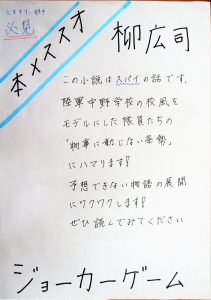 ミステリー好き
必見
オススメ本
柳広司
この小説はスパイの話です。
陸軍中野学校の校風を
モデルにした隊員たちの
「物事に動じない姿勢」
にハマります!
予想できない物語の展開
にワクワクします!
ぜひ読んでみてください
ジョーカーゲーム